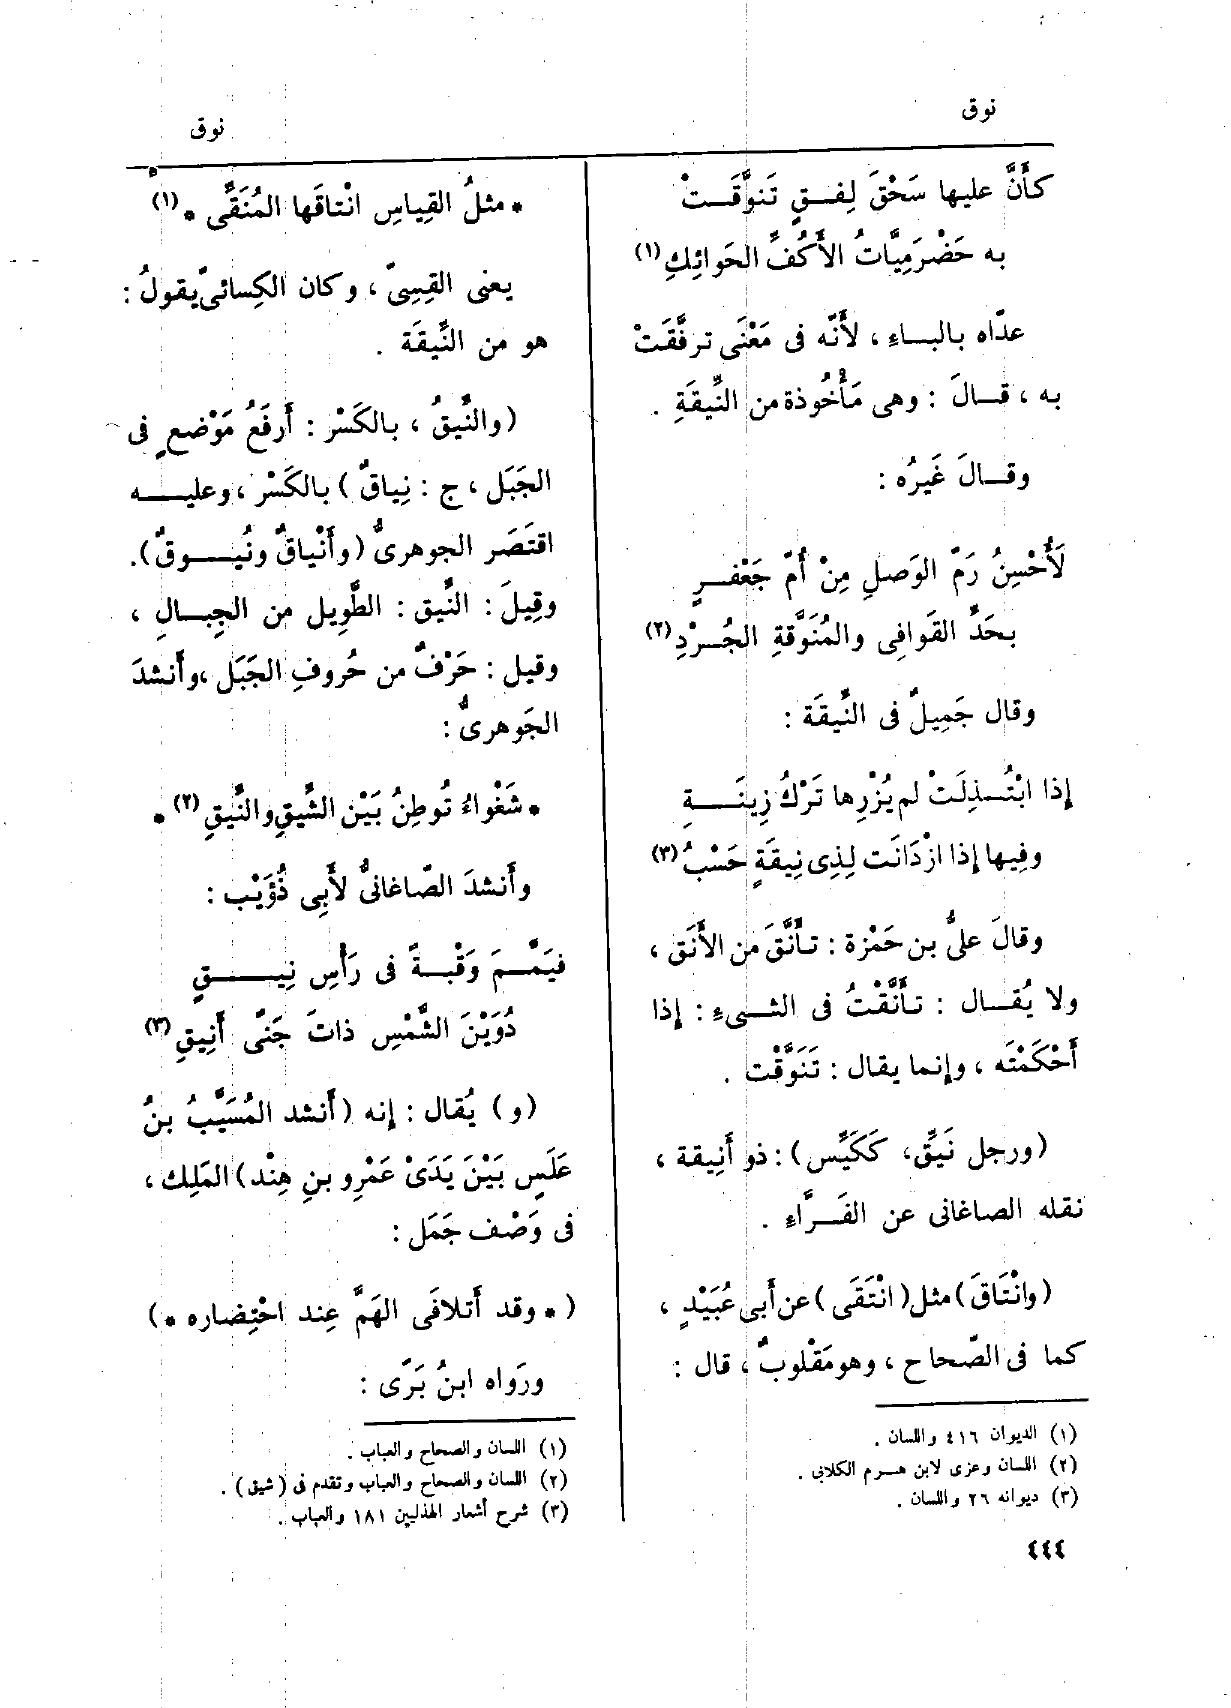 نوق
كأَنَّ عليها سَحْقَ لِفـقٍ تَنوَّقَـتْ
به حَضْرَمِيَّاتُ الأَكُفِّ الحَوائِكِ (١)
عدّاه بالبـاءِ ، لأَنّه فى مَعْنَى ترفَّقَتْ
به ، قـالَ : وهى مَأْخُوذة من النِّيقَةِ .
وقـالَ غَيرُه :
لَأُحْسِنُ رَمَّ الوَصلِ مِنْ أُمِّ جَعْفـرٍ
بحَدِّ القَوافِى والمُنَوَّقةِ الجُـرْدِ (٢)
وقال جَمِيلٌ فى النِّيقَة :
إذا ابْتُـذِلَتْ لم يُزْرِها تَرْكُ زِينَـةٍ
وفِيها إذا ازْدَانَت لِذِى نِيقَةٍ حَسْبُ (٣)
وقالَ علىُّ بن حَمْزة : تأَنَّقَ من الأَنَق ،
ولا يُقـال : تأَنَّقْتُ فى الشـىءِ : إذا
أَحْكَمْتَه ، وإنما يقال : تَنَوَّقْت .
(ورجل نَيِّق، كَكَيِّس) : ذو أَنِيقة ،
نقله الصاغانى عن الفَـرَّاءِ .
(وانْتَاقَ) مثل (انْتَقَى) عن أَبى عُبَيْدٍ ،
كما فى الصّحاح ، وهو مَقْلوبٌ ، قال :
(١) الديوان ٤١٦ واللسان .
(٢) اللسان وعزى لابن هـرم الكلابي .
(٣) ديوانه ٢٦ واللسان .
٤٤٤
نوق
* مثلُ القِياسِ انْتاقَها المُنَقِّى * (١)
يعنى القِسِىّ ، وكان الكِسائىّ يقولُ :
هو من النِّيقَة .
(والنِّيقُ ، بالكَسْر : أَرفَعُ مَوْضعٍ فى
الجَبَل ، ج : نِياقٌ) بالكَسْر ، وعليـه
اقتَصَر الجوهرىُّ (وأَنْياقٌ ونُيـوقٌ).
وقِيلَ : النِّيق : الطَّوِيل من الجِبـالِ ،
وقيل : حَرْفٌ من حُروفِ الجَبَل ،وأَنشدَ
الجَوهرىُّ :
* شَغْواءُ تُوطِنُ بَيْن الشِّيقِ والنِّيقِ (٢) *
وأَنشدَ الصّاغانىُّ لأَبِى ذُؤَيْب :
فيَمَّـمَ وَقْبـةً فى رَأْسِ نِيـقٍ
دُوَيْنَ الشَّمْسِ ذاتَ جَنًى أَنِيقِ (٣)
(و) يُقال : إنه (أَنشد المُسَيَّبُ بنُ
عَلَسٍ بَيْنَ يَدَىْ عَمْرِو بنِ هِنْد) المَلِك ،
فى وَصْف جَمَل :
( * وقد أَتلافَى الهَمَّ عِند احْتِضاره * )
ورَواه ابنُ بَرّى :
(١) اللسان والصحاح والعباب .
(٢) اللسان والصحاح والعباب وتقدم فى (شيق) .
(٣) شرح أشعار الهذليين ١٨١ والعباب .